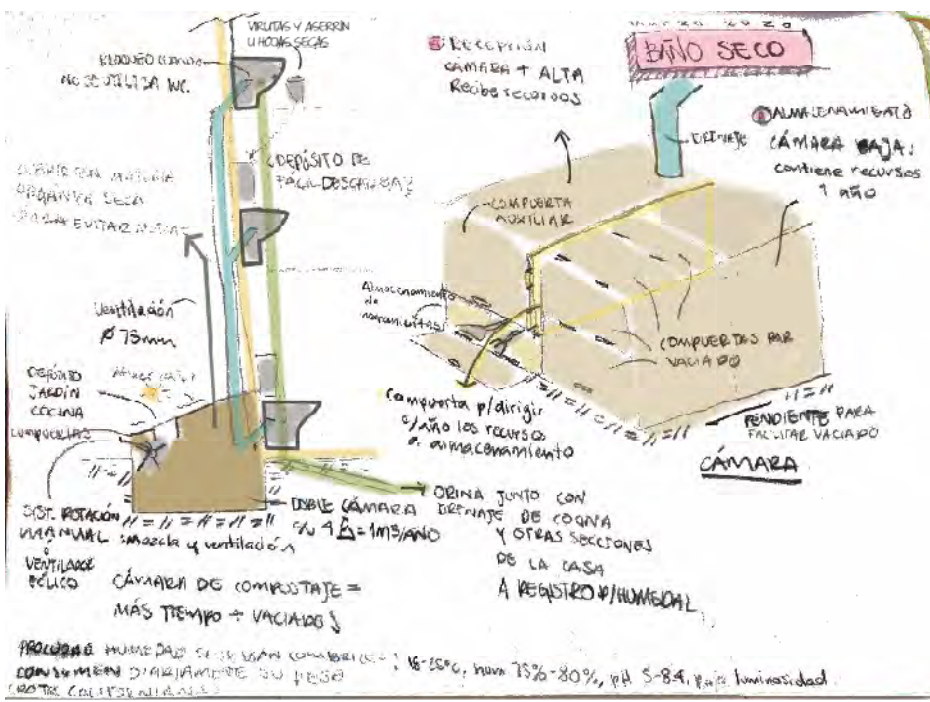 VIRUTAS Y ASERRIN
U HOJAS SECAS
BLOQUEO CUANDO
NO SE UTILIZA WC.
DEPÓSITO DE
FÁCIL DESCARGA
CUBRIR CON MATERIA
ORGÁNICA SECA
PARA EVITAR
Ventilación
Ø 73mm
DEPÓSITO
JARDÍN
COCINA
COMPUERTAS
SIST. ROTACIÓN
MANUAL : mezcla y ventilación
ó
VENTILADOR
EÓLICO
DOBLE CÁMARA
c/u 4 = 1m3/AÑO
CÁMARA DE COMPOSTAJE =
MÁS TIEMPO ÷ VACIADOS
ORINA JUNTO CON
DRENAJE DE COCINA
Y OTRAS SECCIONES
DE LA CASA
A REGISTRO P/HUMEDAL
RECEPCIÓN
CÁMARA + ALTA
Recibe recursos
2020
BAÑO SECO
DRENAJE
ALMACENAMIENTO
CÁMARA BAJA:
contiene recursos
1 año
COMPUERTA
AUXILIAR
Almacenamiento
de
herramientas
COMPUERTAS PAR
VACIADO
compuerta p/dirigir
c/año los recursos
a almacenamiento
PENDIENTE PARA
FACILITAR VACIADO
CÁMARA
HUMEDAD SI SE USAN LOMBRICES : 15-25°C, hum 75%-80%, pH 5-8.4, baja luminosidad.
CONSUMEN DIARIAMENTE SU PESO
ROJAS CALIFORNIANAS